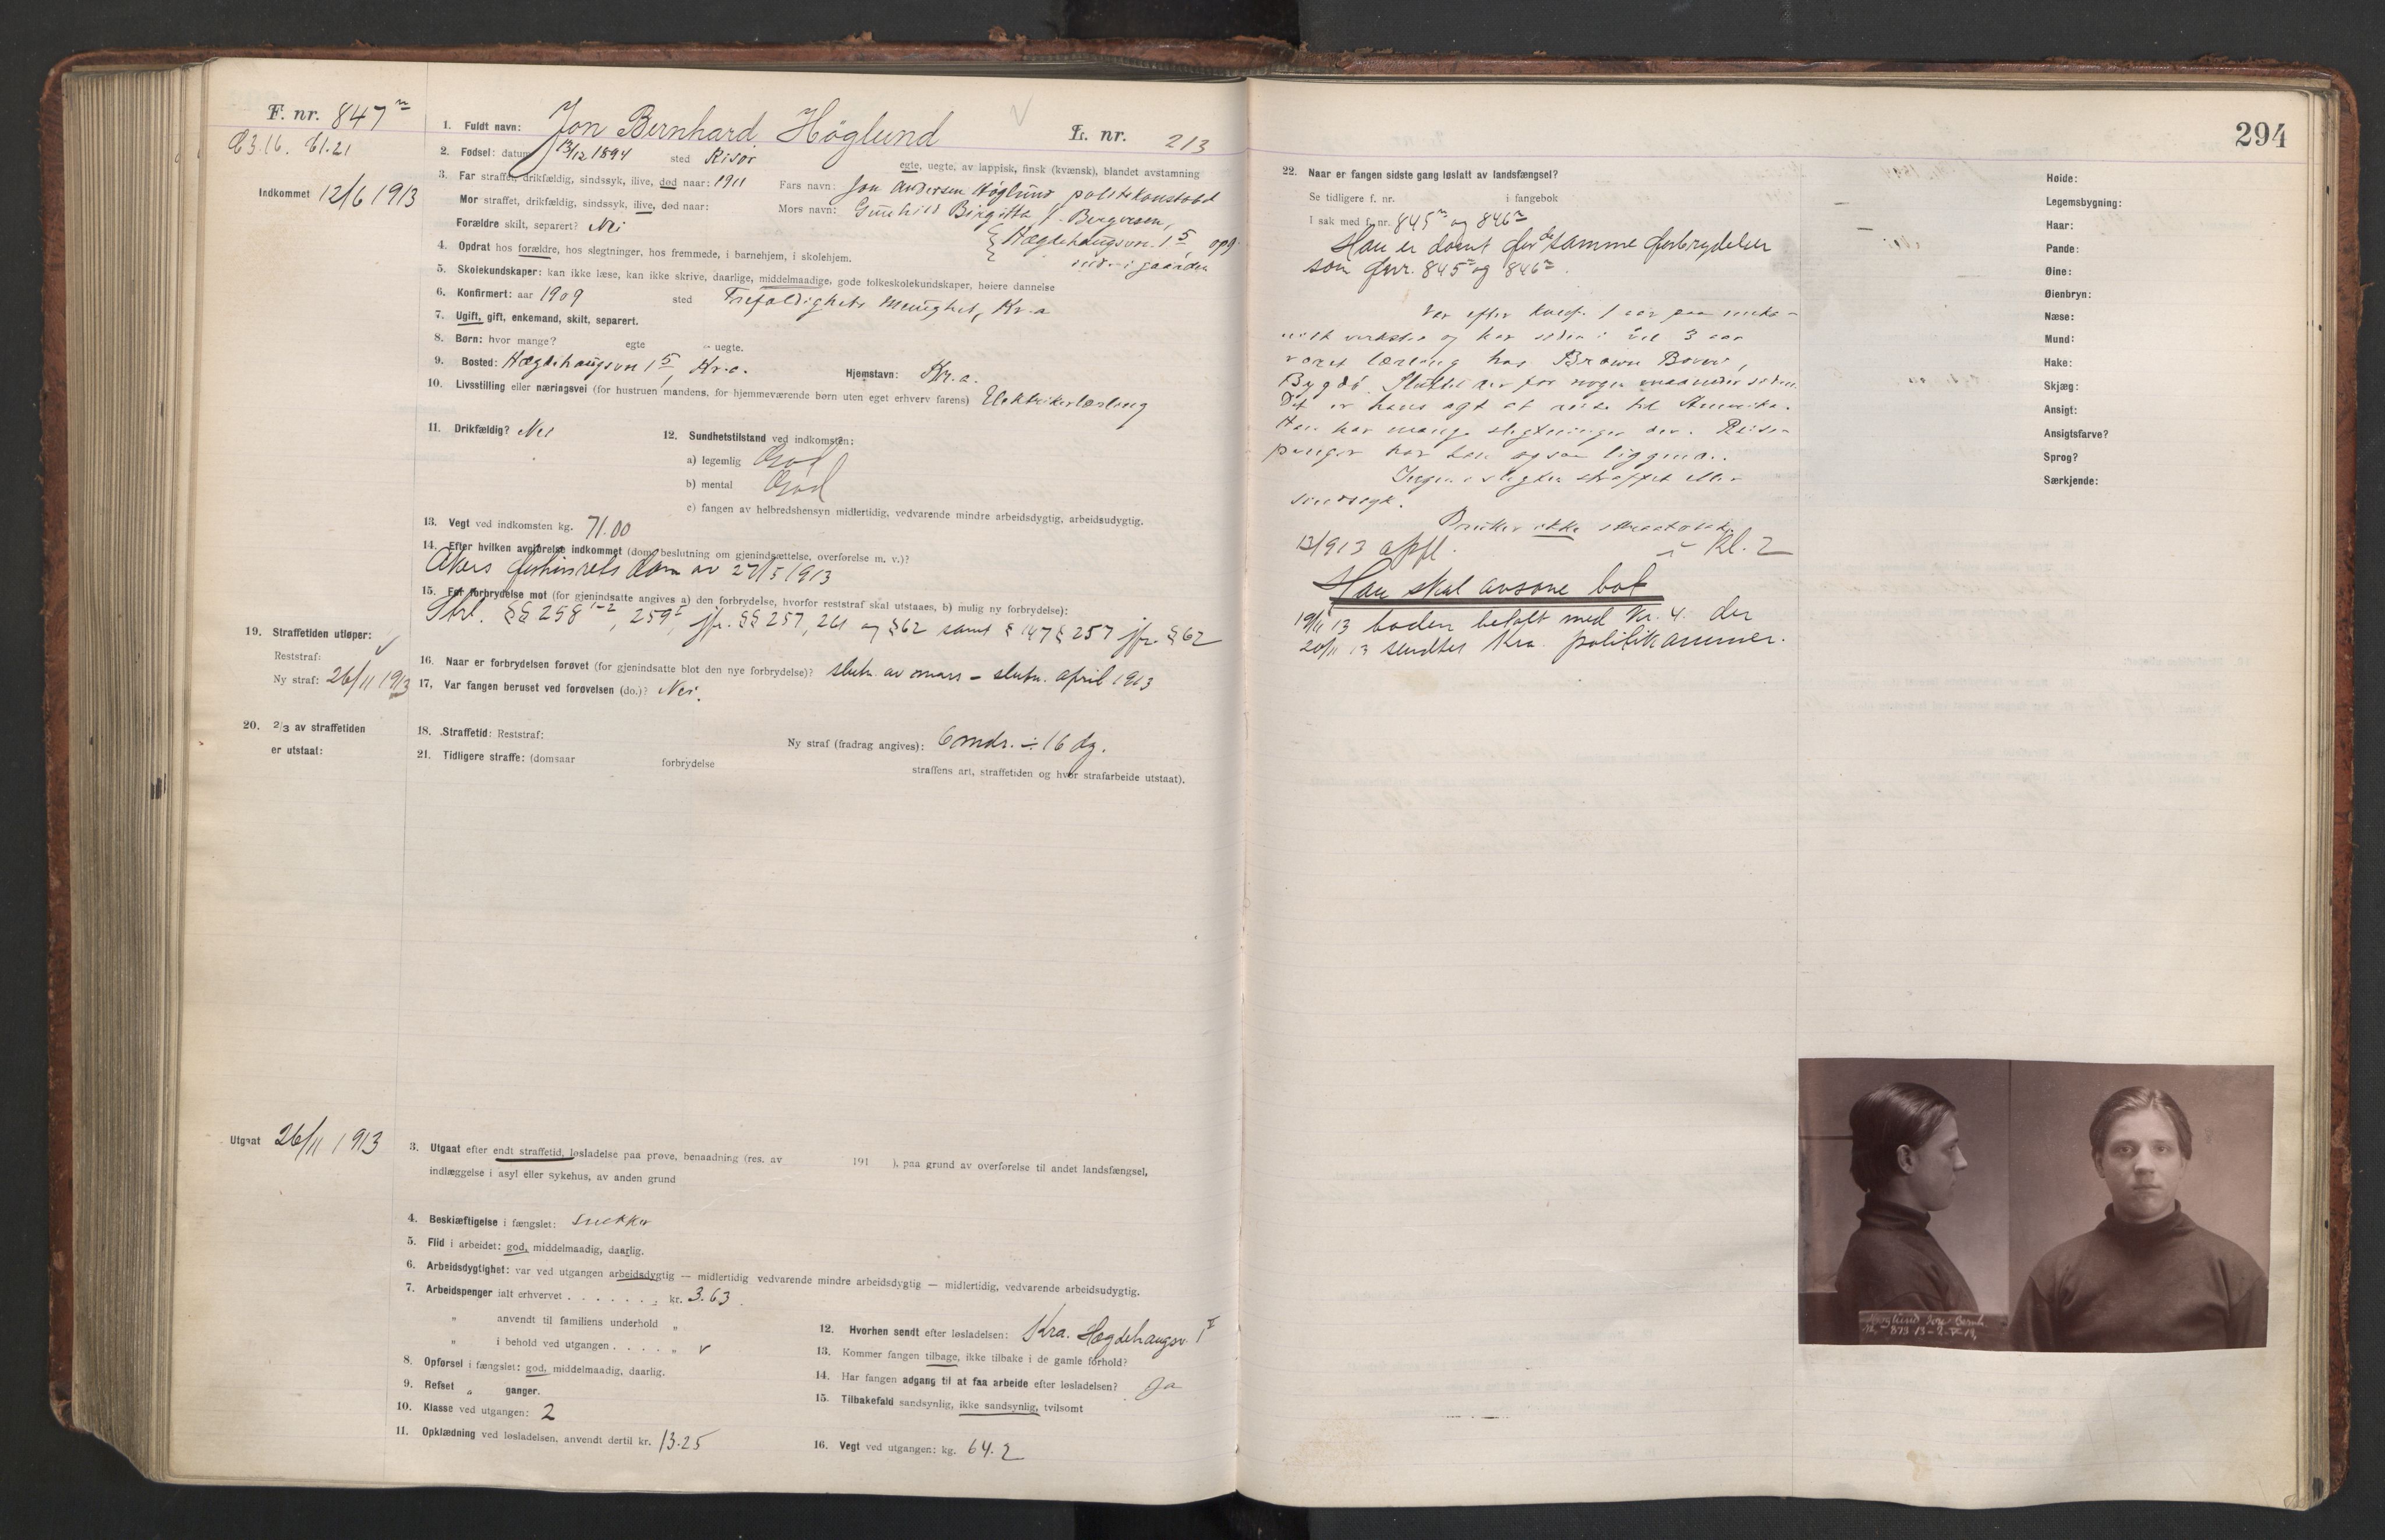 F. nr. 847
Indkommet 12/6 1913
1. Fuldt navn: Jon Bernhard Höglund
L. nr. 213
2. Fødsel: datum 13/12 1894 sted Risør
egte, uegte, av lappisk, finsk (kvænsk), blandet avstamning
3. Far straffet, drikfældig, sindssyk, ilive, død naar: 1911 Fars navn: Jon Andersen Höglund politikonstabel
Mor straffet, drikfældig, sindssyk, ilive, død naar: Mors navn: Gunhild Birgitta f. Bergersen,
Forældre skilt, separert? Nei
Hægdehaugsvn. 15, opg.
4. Opdrat hos forældre, hos slegtninger, hos fremmede, i barnehjem, i skolehjem.
i gaarden
5. Skolekundskaper: kan ikke læse, kan ikke skrive, daarlige, middelmaadige, gode folkeskolekundskaper, høiere dannelse
6. Konfirmert: aar 1909 sted Trefoldighets menighet, Kr.a
7. Ugift, gift, enkemand, skilt, separert.
8. Børn: hvor mange? egte uegte.
9. Bosted: Hægdehaugsvn 15, Kr.a. Hjemstavn: Kr.a.
10. Livsstilling eller næringsvei (for hustruen mandens, for hjemmeværende børn uten eget erhverv farens) Elektrikerlærling
11. Drikfældig? Nei
12. Sundhetstilstand ved indkomsten:
a) legemlig God
b) mental God
c) fangen av helbredshensyn midlertidig, vedvarende mindre arbeidsdygtig, arbeidsudygtig.
13. Vegt ved indkomsten kg. 71.00
14. Efter hvilken avgjørelse indkommet (dom, beslutning om gjenindsættelse, overførelse m. v.)?
Akers forhørsrets dom av 27/5 1913
15. For forbrydelse mot (for gjenindsatte angives a) den forbrydelse, hvorfor reststraf skal utstaaes, b) mulig ny forbrydelse):
Strl. §§ 258 1-2, 259 I, jfr. §§ 257, 261 og § 62 samt § 147 § 257 jfr. § 62
16. Naar er forbrydelsen forøvet (for gjenindsatte blot den nye forbrydelse)? slutn. av mars – slutn. april 1913
17. Var fangen beruset ved forøvelsen (do.)? Nei.
19. Straffetiden utløper:
Reststraf:
Ny straf: 26/11 1913
20. 2/3 av straffetiden
er utstaat:
18. Straffetid: Reststraf: Ny straf (fradrag angives): 6 mdr. ÷ 16 dg.
21. Tidligere straffe: (domsaar forbrydelse straffens art, straffetiden og hvor strafarbeide utstaat).
Utgaat 26/11 1913
3. Utgaat efter endt straffetid, løsladelse paa prøve, benaadning (res. av 191 ), paa grund av overførelse til andet landsfængsel,
indlæggelse i asyl eller sykehus, av anden grund
4. Beskjæftigelse i fængslet: snekker
5. Flid i arbeidet: god, middelmaadig, daarlig.
6. Arbeidsdygtighet: var ved utgangen arbeidsdygtig — midlertidig vedvarende mindre arbeidsdygtig — midlertidig, vedvarende arbeidsudygtig.
7. Arbeidspenger ialt erhvervet . . . . . . . kr. 3.63
" anvendt til familiens underhold "
" i behold ved utgangen . . . . "
8. Opførsel i fængslet: god, middelmaadig, daarlig.
9. Refset " ganger.
10. Klasse ved utgangen: 2
11. Opklædning ved løsladelsen, anvendt dertil kr. 13.25
12. Hvorhen sendt efter løsladelsen: Kra. Hægdehaugsv. 1
13. Kommer fangen tilbage, ikke tilbake i de gamle forhold?
14. Har fangen adgang til at faa arbeide efter løsladelsen? Ja
15. Tilbakefald sandsynlig, ikke sandsynlig, tvilsomt
16. Vegt ved utgangen: kg. 64.2
294
22. Naar er fangen sidste gang løslatt av landsfængsel?
Se tidligere f. nr. i fangebok
I sak med f. nr. 845 og 846
Han er dømt for de samme forbrydelser
som fnr. 845 og 846.
Var efter konf. 1 aar paa meka-
nisk verksted og har siden i vel 3 aar
været lærling hos Brown Boveri,
Bygdö. Sluttet der for nogen maaneder siden.
Det er hans agt at reise til Amerika.
Han har mange slegtninger der. Reise-
penger har han ogsaa liggende.
Ingen i slegten straffet eller
sindssyk.
Bruker ikke
1913 opfl. Kl. 2
Han skal avsone bot
19/11 13 boden betalt med Kr. 4. der
20/11 13 sendtes Kra. politikammer.
Høide:
Legemsbygning:
Haar:
Pande:
Øine:
Øienbryn:
Næse:
Mund:
Hake:
Skjæg:
Ansigt:
Ansigtsfarve?
Sprog?
Særkjende:
Høglund Jon Bernh.